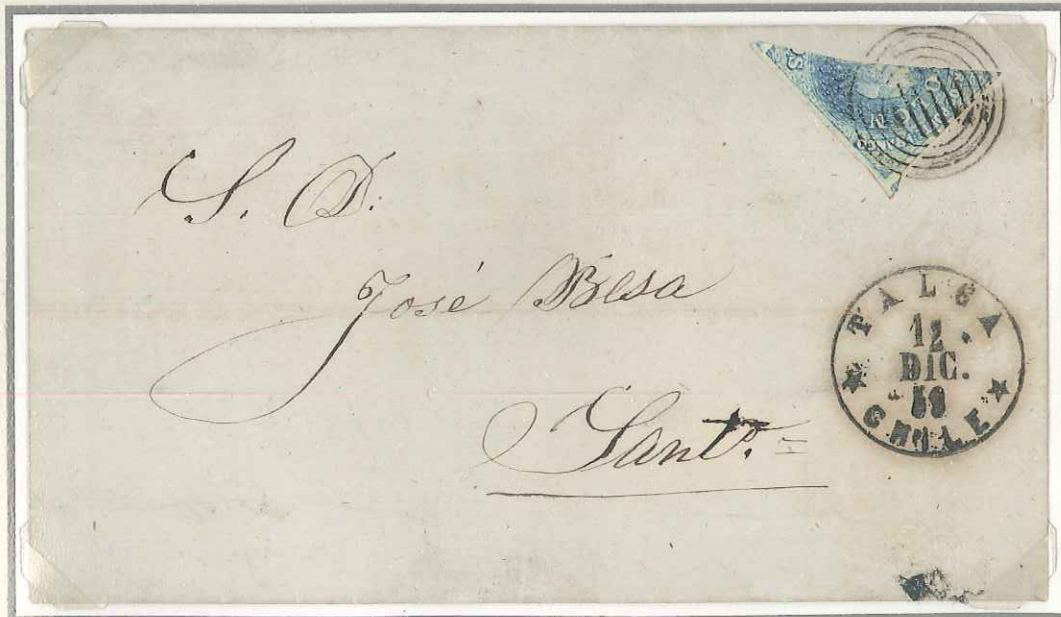 S. D.
José Besa
Sant.º
TALCA
12
DIC.
59
CHILE